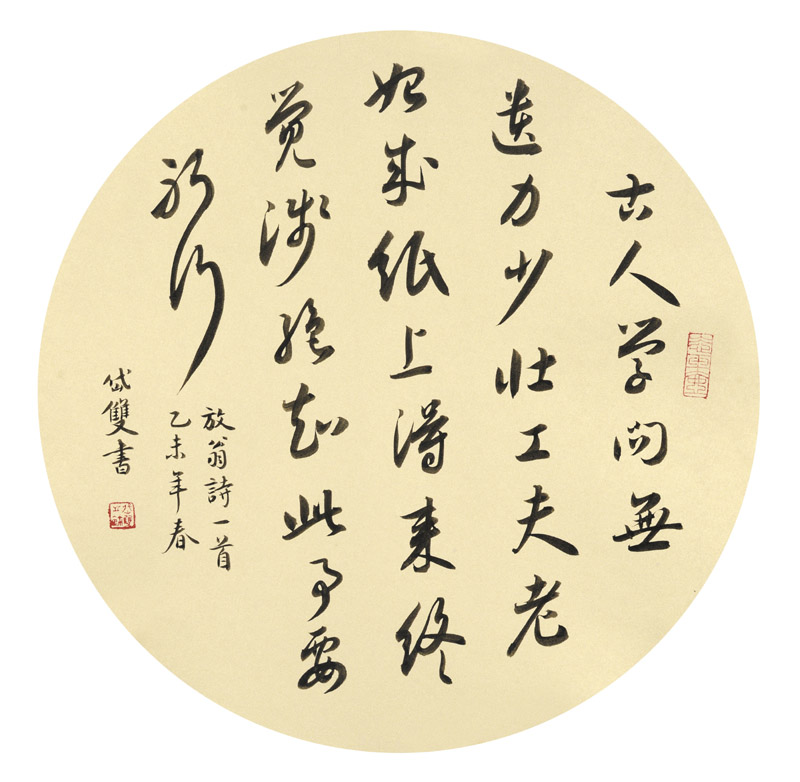 古人学问無
遗力少壮工夫老
始成纸上得来终
觉淺绝知此事要
躬行
放翁詩一首
乙未年春
岱雙書